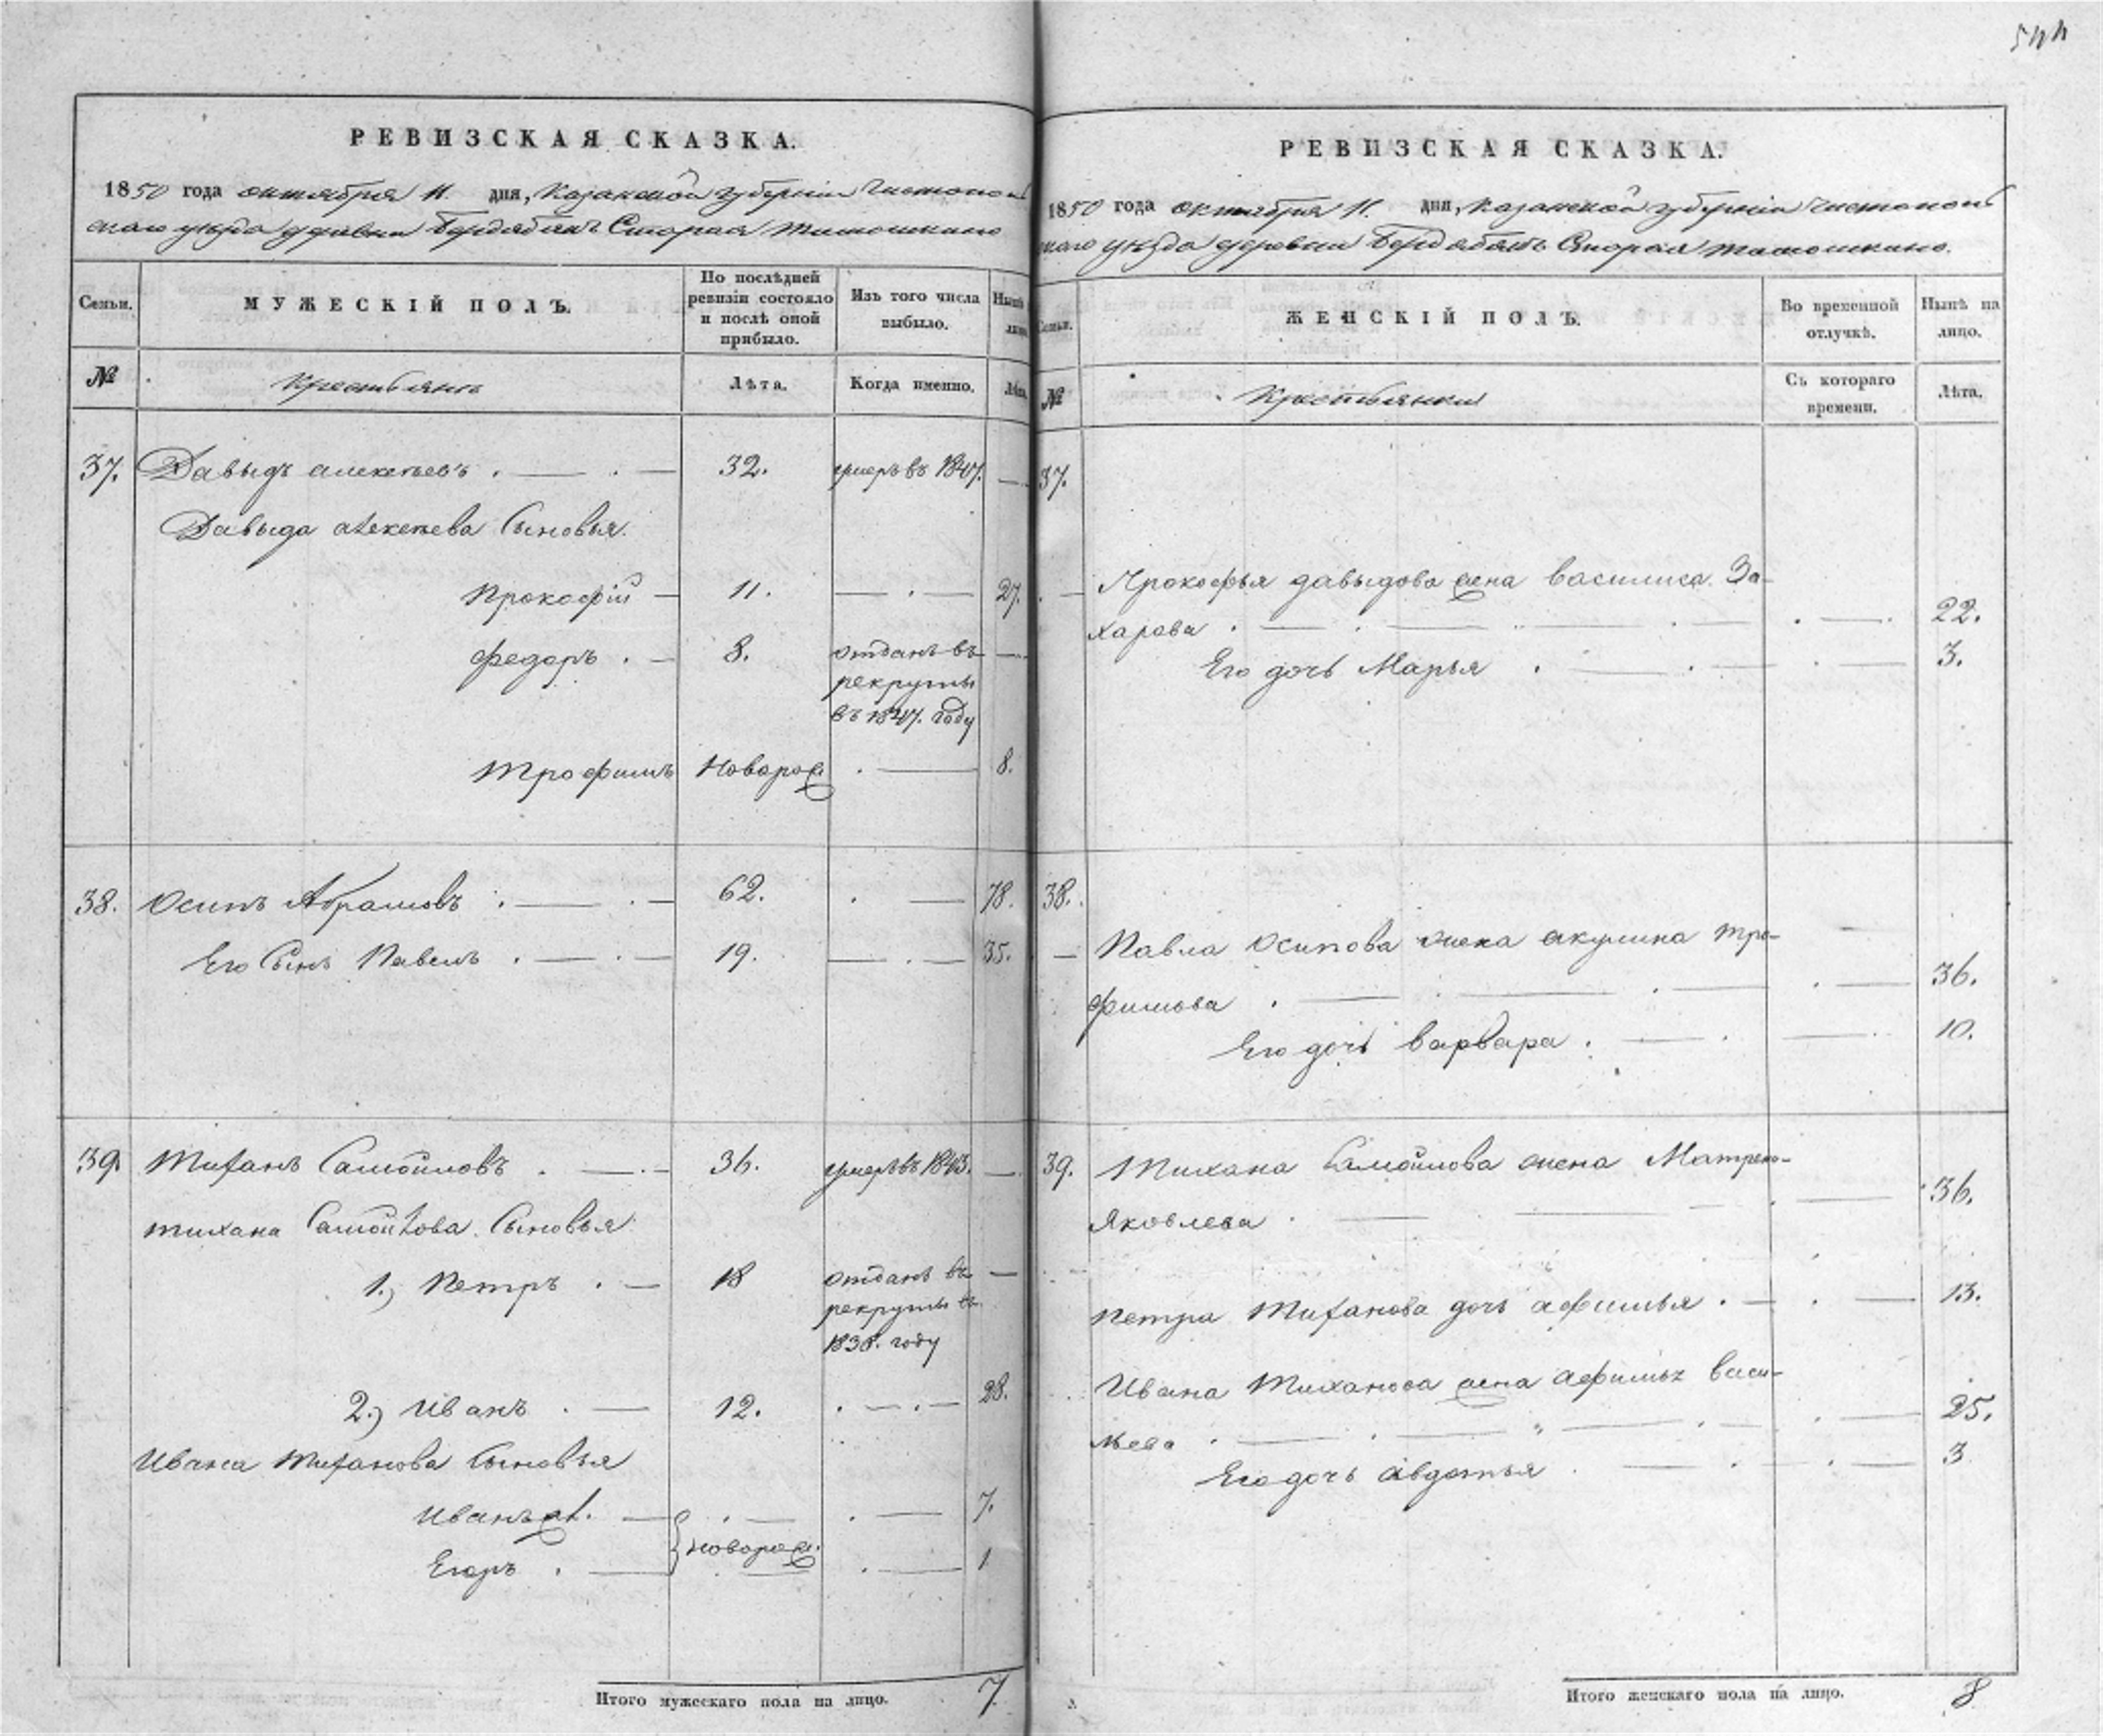 544
РЕВИЗСКАЯ СКАЗКА.
1850 года октября 11. дня, Казанской губерніи Чистополь
скаго уѣзда деревни Старая Тимошкино
Семьи. МУЖЕСКІЙ ПОЛЪ. По послѣдней ревизіи состояло и послѣ оной прибыло. Изъ того числа выбыло. Нынѣ на лицо.
№ Крестьянъ Лѣта. Когда именно. Лѣта.
37. Давыдъ алексѣевъ . — . — 32. умеръ въ 1847. —
Давыда алексѣева Сыновья.
Прокофій — 11. — . — 27.
федоръ . — 8. отданъ въ —
рекруты
въ 1847. году
Трофимъ Новорож. . — 8.
38. Осипъ Абрамовъ . — . — 62. . — 78.
Его Сынъ Павелъ . — . — 19. — . — 35.
39. Тиханъ Самойловъ . — . — 36. умеръ въ 1843. —
тихана Самойлова Сыновья
1.) Петръ . — 18 отданъ въ —
рекруты въ
1838. году
2.) Иванъ . — 12. . — . — 28.
Ивана Тиханова Сыновья
Иванъ . — . — . — 7.
Новорож.
Егоръ . — . — 1
Итого мужескаго пола на лицо. 7
РЕВИЗСКАЯ СКАЗКА.
1850 года октября 11. дня, Казанской губерніи Чистополь
скаго уѣзда деревни Старая Тимошкино.
Семьи. ЖЕНСКІЙ ПОЛЪ. Во временной отлучкѣ. Нынѣ на лицо.
№ Крестьянки Съ котораго времени. Лѣта.
37.
Прокофья давыдова жена василиса За-
харова . — . — . — 22.
Его дочь Марья . — . — . — 3.
38.
Павла Осипова жена акулина тро-
фимова . — . — . — 36.
Его дочь варвара . — . — 10.
39. Тихана Самойлова жена Матрена
Яковлева . — — — 36.
Петра Тиханова дочь афимья . — . — 13.
Ивана Тиханова жена афимья васи-
льева . — . — . — 25.
Его дочь авдотья . — . — 3
Итого женскаго пола на лицо. 8